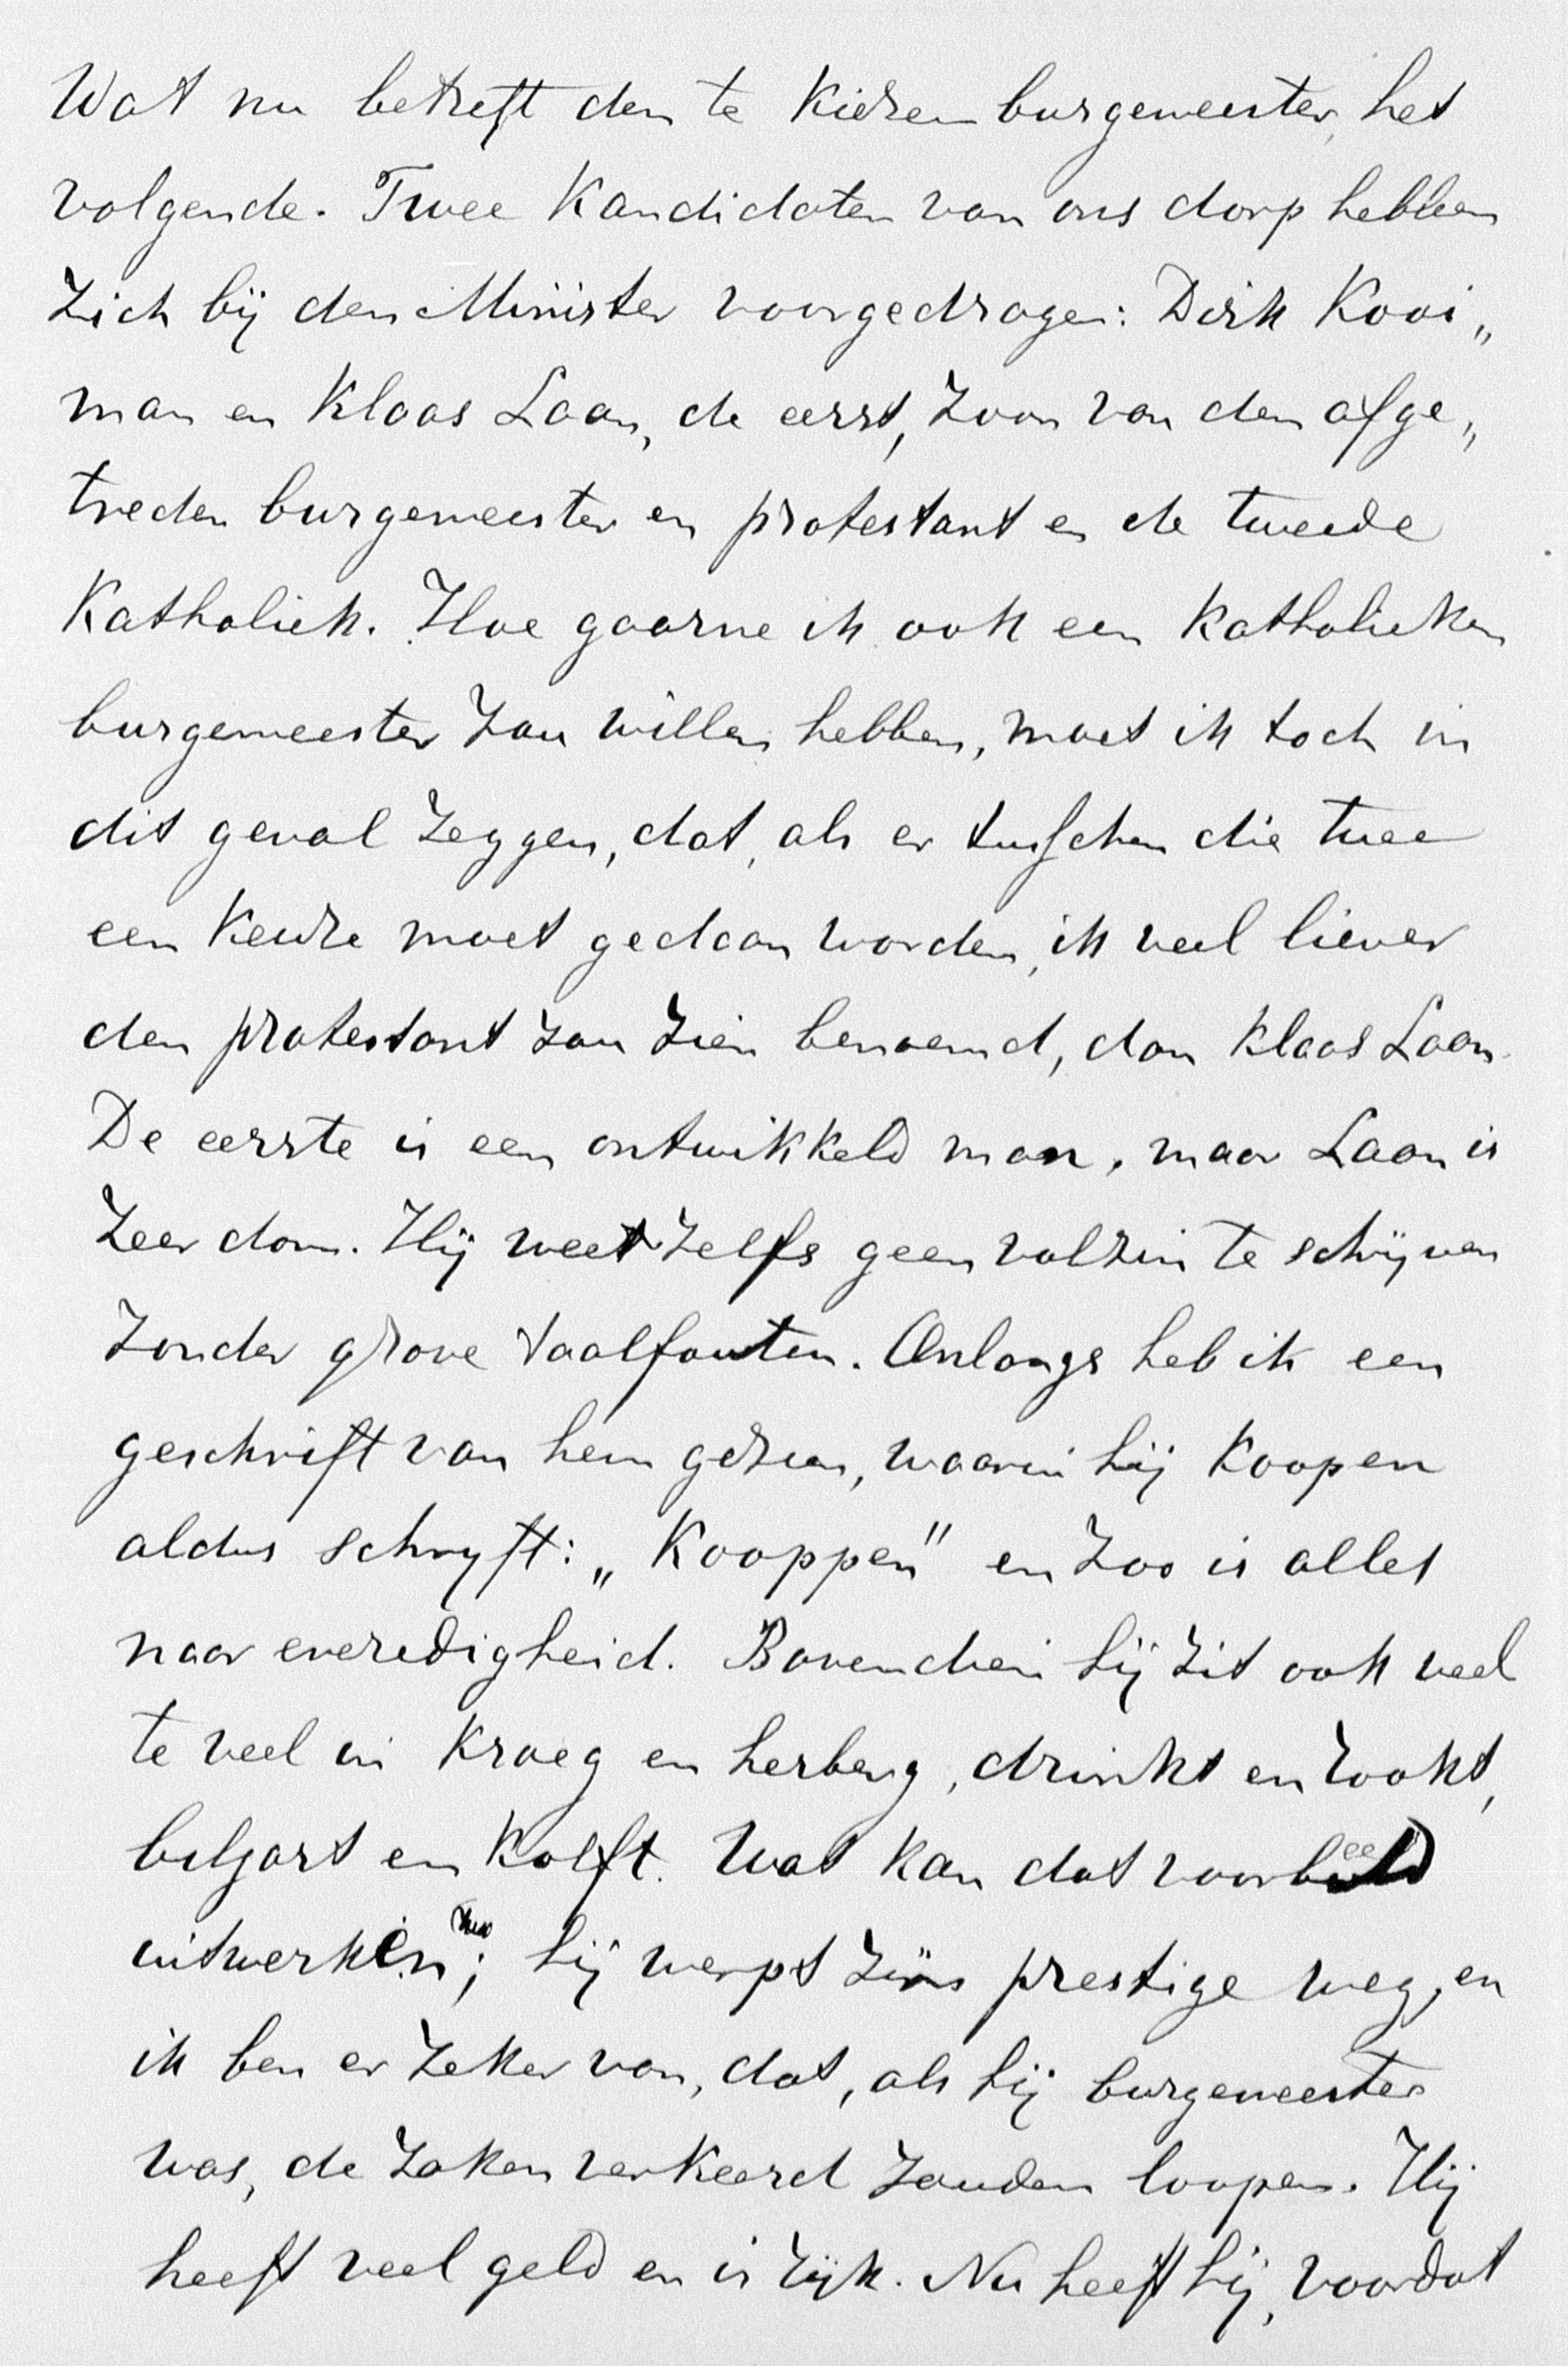 Wat nu betreft den te kiezen burgemeester, het
volgende. Twee kandidaten van ons dorp hebben
zich bij den Minister voorgedragen: Dirk Kooi„
man en Klaas Laan, de eerst, zoon van den afge„
treden burgemeester en protestant en de tweede
Katholiek. Hoe gaarne ik ook een Katholieken
burgemeester zou willen hebben, moet ik toch in
dit geval zeggen, dat, als er tusschen die twee
een keuze moet gedaan worden, ik veel liever
den protestant zou zien benoemd, dan Klaas Laan.
De eerste is een ontwikkeld man, maar Laan is
zeer dom. Hij weet zelfs geen volzin te schijven
zonder grove taalfouten. Onlangs heb ik een
geschrift van hem gezien, waarin hij koopen
aldus schryft: „Kooppen" en zoo is alles
naar everedigheid. Bovendien hij zit ook veel
te veel in kroeg en herberg, drinkt en rookt,
biljart en kolft. Wat kan dat voorbeeld
uitwerken; hij werpt zijns prestige weg, en
ik ben er zeker van, dat, als hij burgemeester
was, de zaken verkeerd zouden loopen. Hij
heeft veel geld en is rijk. Nu heeft hij, voordat